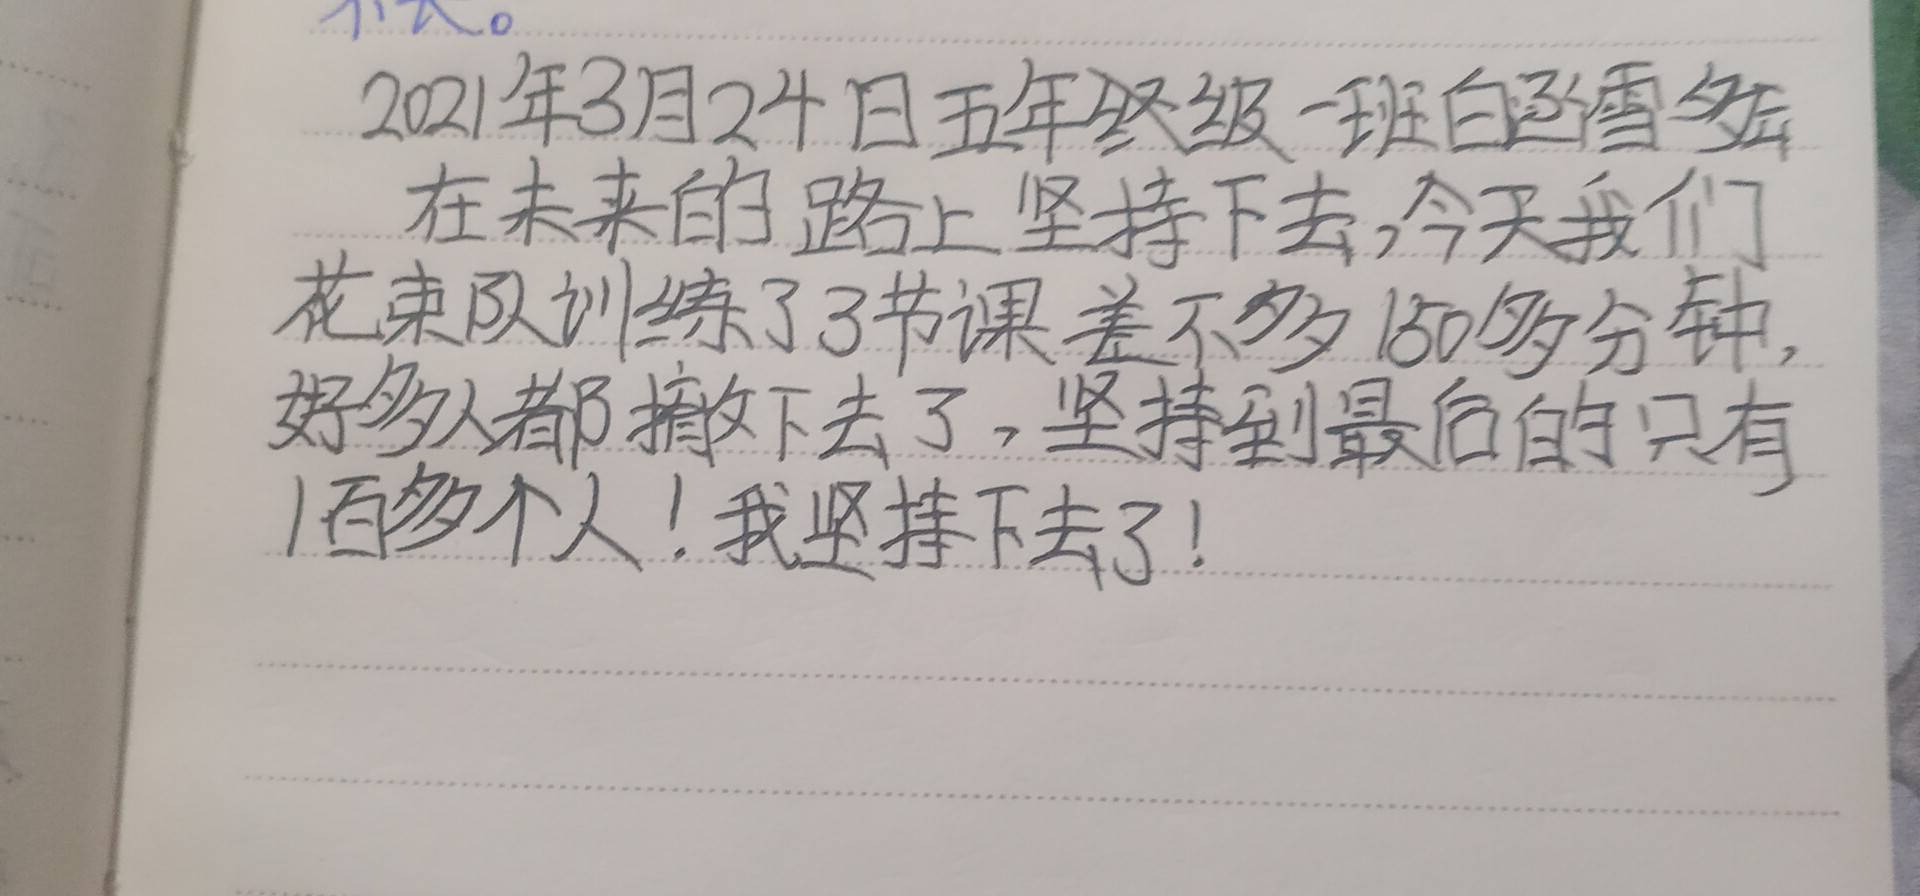 2021年3月24日五年级一班白雪
在未来的路上坚持下去,今天我们
花束队训练了3节课差不多150多分钟,
好多人都撤下去了,坚持到最后的只有
1百多个人!我坚持下去了!